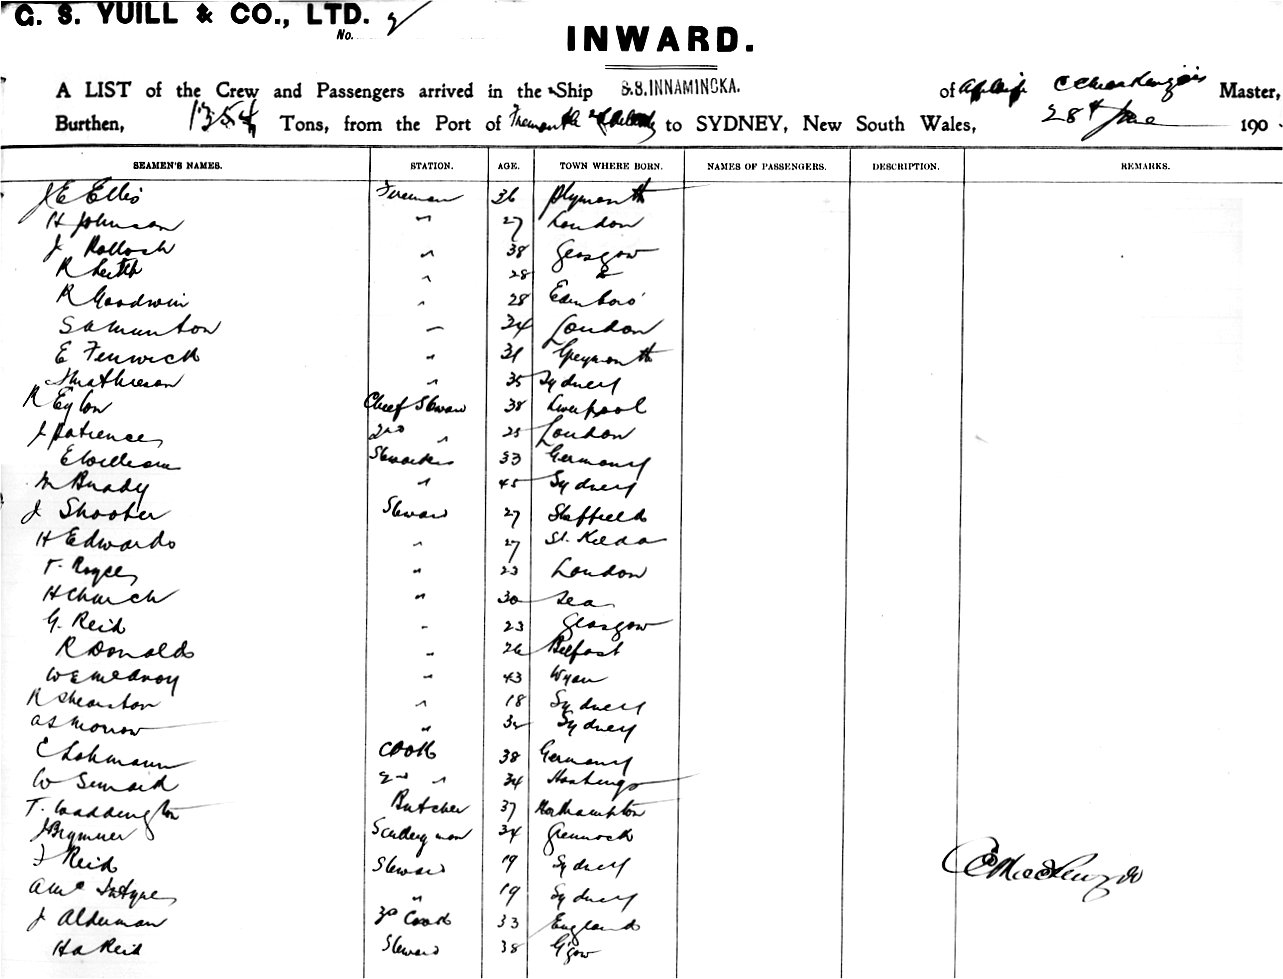 G. S. YUILL & CO., LTD.
No. 2
INWARD.
A LIST of the Crew and Passengers arrived in the Ship S.S. INNAMINCKA. of Master,
Burthen, 1354 Tons, from the Port of Fremantle to SYDNEY, New South Wales, 28th June 190
SEAMEN'S NAMES. STATION. AGE. TOWN WHERE BORN. NAMES OF PASSENGERS. DESCRIPTION. REMARKS.
J E Ellis Fireman 36 Plymouth
H Johnson " 27 London
J " 38 Glasgow
R Leith " 28 Do
R Goodwin " 28 Edinboro'
" 34 London
E Fenwick " 31 Greymouth
Mathieson " 35 Sydney
R Eylon Chief Steward 38 Liverpool
J Patience 2nd " 25 London
E William 33 Germany
M Brady " 45 Sydney
J Shooter Steward 27 Sheffield
H Edwards " 27 St. Kilda
T. Royce " 23 London
H Church " 30 Sea
G. Reid " 23 Glasgow
R Donalds " 26 Belfast
" 43
R Shearston " 18 Sydney
A S Morrow " Sydney
C Lohmann Cook 38 Germany
W 2nd " 34 Hastings
T. Waddington Butcher 37 Northampton
J Brymner Sculleryman 34 Greenock
J Reid Steward 19 Sydney
C Mackenzie
A Mc Intyre " 19 Sydney
J Alderman 3rd Cook 33 England
H A Reid Steward 38 G'gow